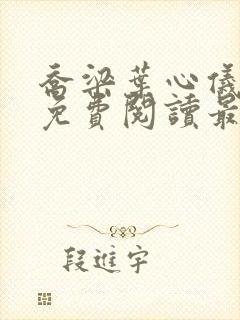 喬梁葉心儀
免費閱讀最
段進宇